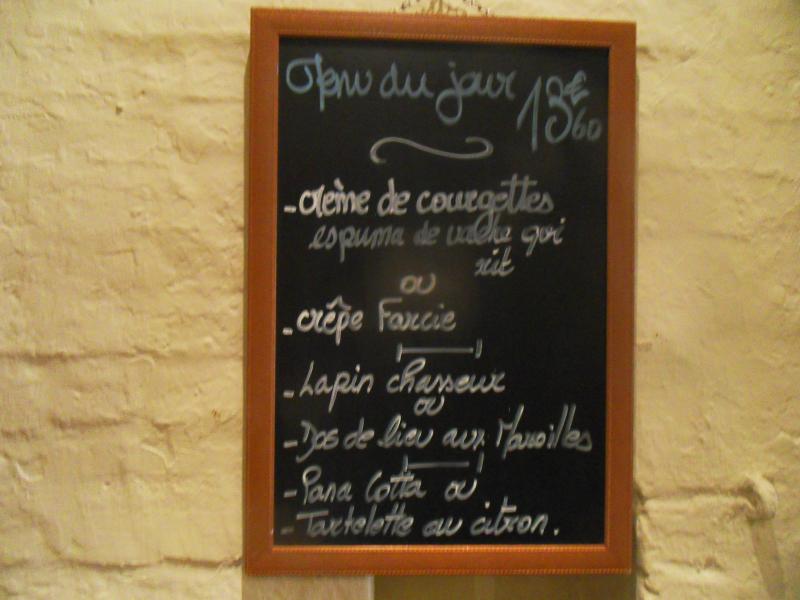 Menu du jour 13€60
- crème de courgettes
espuma de vache qui
rit
ou
- crêpe Farcie
- Lapin chasseur
ou
- Dos de lieu aux Maroilles
- Pana Cotta ou
- Tartelette au citron.